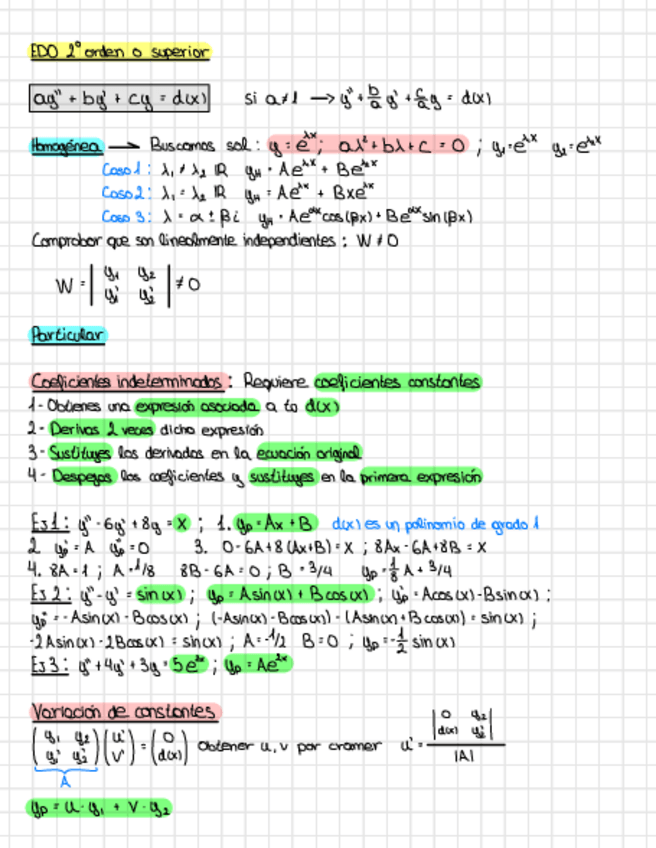 EDO 2° orden o superior
ay'' + by' + cy = d(x)    si a≠1 → y'' + b/a y' + c/a y = d(x)
Homogénea → Buscamos sol: y = e^λx ; aλ² + bλ + c = 0 ; y₁ = e^λx  y₂ = e^λ₂x
Caso 1: λ₁ ≠ λ₂ ℝ  y_H = Ae^λx + Be^λ₂x
Caso 2: λ₁ = λ₂ ℝ  y_H = Ae^λx + Bxe^λx
Caso 3: λ = α ± βi  y_H = Ae^αx cos(βx) + Be^αx sin(βx)
Comprobar que son linealmente independientes: W ≠ 0
W = | y₁ y₂ | ≠ 0
| y₁' y₂' |
Particular
Coeficientes indeterminados: Requiere coeficientes constantes
1- Obtienes una expresión asociada a to d(x)
2- Derivas 2 veces dicha expresión
3- Sustituyes las derivadas en la ecuación original
4- Despejas los coeficientes y sustituyes en la primera expresión
Ej 1: y'' - 6y' + 8y = x ; 1. yp = Ax + B  d(x) es un polinomio de grado 1
2. yp' = A  yp'' = 0    3. 0 - 6A + 8(Ax+B) = x ; 8Ax - 6A + 8B = x
4. 8A = 1 ; A = 1/8   8B - 6A = 0 ; B = 3/4   yp = 1/8 A + 3/4
Ej 2: y'' - y' = sin(x) ; yp = Asin(x) + Bcos(x) ; yp' = Acos(x) - Bsin(x) ;
yp'' = -Asin(x) - Bcos(x) ; (-Asin(x) - Bcos(x)) - (Asin(x) + Bcos(x)) = sin(x) ;
-2Asin(x) - 2Bcos(x) = sin(x) ; A = -1/2  B = 0 ; yp = -1/2 sin(x)
Ej 3: y'' + 4y' + 3y = 5e^2x ; yp = Ae^2x
Variación de constantes
( y₁ y₂ ) ( u' ) = ( 0 )  Obtener u, v por cramer  u' = | 0 y₂ |
( y₁' y₂' ) ( v' ) ( d(x) )  | d(x) y₂' |
|A|
A
yp = u · y₁ + v · y₂